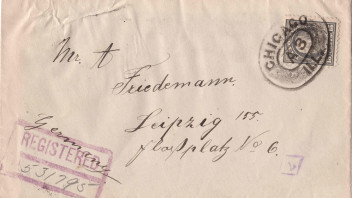 CHICAGO
ILL.
Mr. A
Friedemann.
Leipzig 155.
Flossplatz No 6.
Germany
REGISTERED
531795